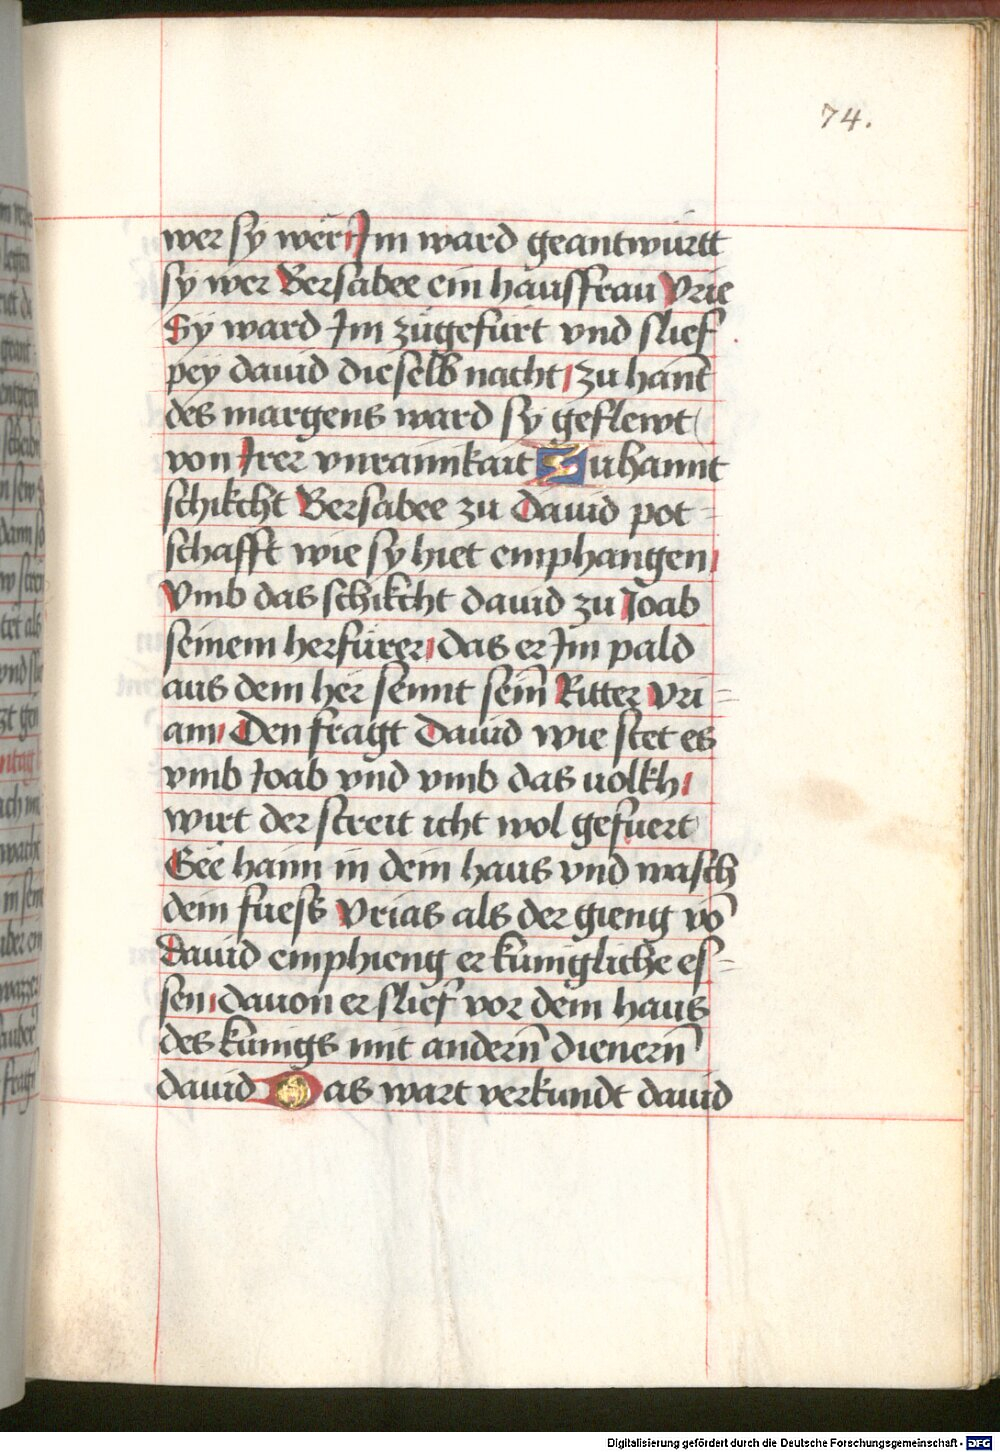 74.
wer sy wër Im ward geantwürtt
sy wer Bersabee ein hausfrau Vrie
Sy ward Im zügefürt vnd slief
pey dauid dieselb nacht zu hant
des margens ward sy geflewt
von Irer vnrainikait Zuhannt
schikcht Bersabee zu Dauid pot=
schafft wie sy hiet emphangen
Vmb das schikcht dauid zu Joab
seinem herfürer das er Im pald
aus dem her sennt sein̄ Ritter Vri=
am Den fragt Dauid wie stet es
vmb Joab vnd vmb das uolkh
wirt der streit icht wol gefuert
Gee haim in dein haus vnd wasch
dein fuess Vrias als der gieng vō
Dauid emphieng er künigliche es=
sen dauon er slief vor dem haus
des künigs mit andern̄ dienern̄
dauid Das wart verkundt dauid
Digitalisierung gefördert durch die Deutsche Forschungsgemeinschaft - DFG